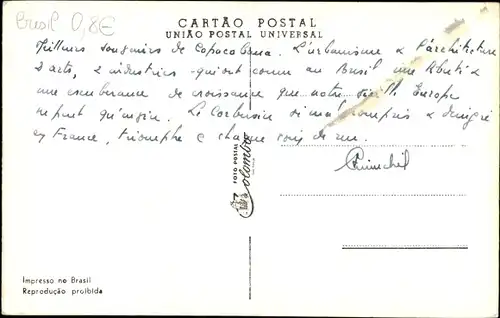 Bresil 0,8€
CARTÃO POSTAL
UNIÃO POSTAL UNIVERSAL
Meilleurs souvenirs de Copacabana. L'urbanisme & l'architecture
& arts, & industries qui ont connu au Brésil une
une exubérance de croissance que notre vieille Europe
ne peut qu'envier. Le Corbusier si mal compris & dénigré
en France, triomphe à chaque coin de rue.
FOTO POSTAL
Colombo
Impresso no Brasil
Reprodução proibida